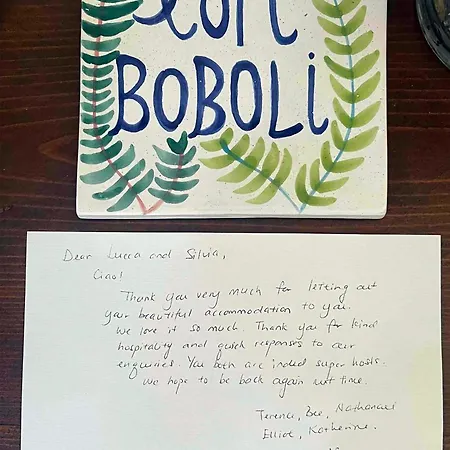 LOFT
BOBOLi
Dear Lucca and Silvia,
Ciao!
Thank you very much for letting out
your beautiful accommodation to you.
We love it so much. Thank you for kind
hospitality and quick responses to our
enquiries. You both are indeed super hosts.
We hope to be back again next time.
Terence, Bee, Nathanael
Elliot, Katherine.